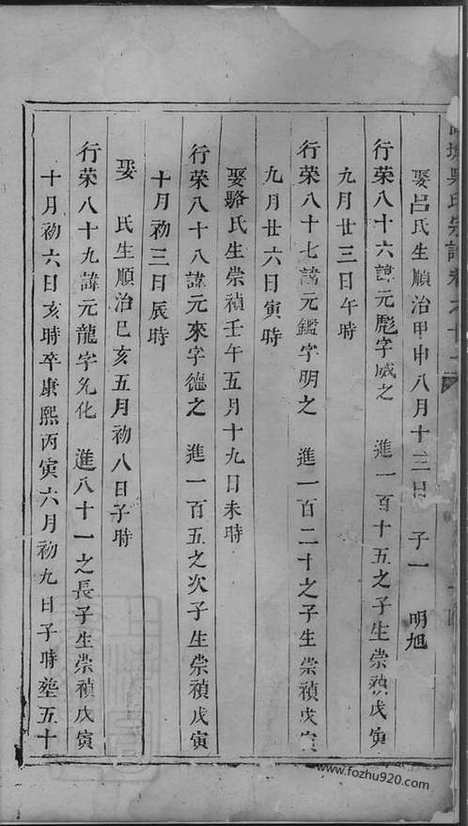 吳氏宗譜卷之十
娶呂氏生順治甲申八月十三日 子一 明旭
行荣八十六諱元彪字威之 進一百十五之子生崇禎戊寅
九月廿三日午時
行荣八十七諱元鑑字明之 進一百二十之子生崇禎戊寅
九月廿六日寅時
娶駱氏生崇禎壬午五月十九日未時
行荣八十八諱元來字德之 進一百五之次子生崇禎戊寅
十月初三日辰時
娶 氏生順治己亥五月初八日子時
行荣八十九諱元龍字允化 進八十一之長子生崇禎戊寅
十月初六日亥時卒康熙丙寅六月初九日子時塟五十
www.fozhu920.com